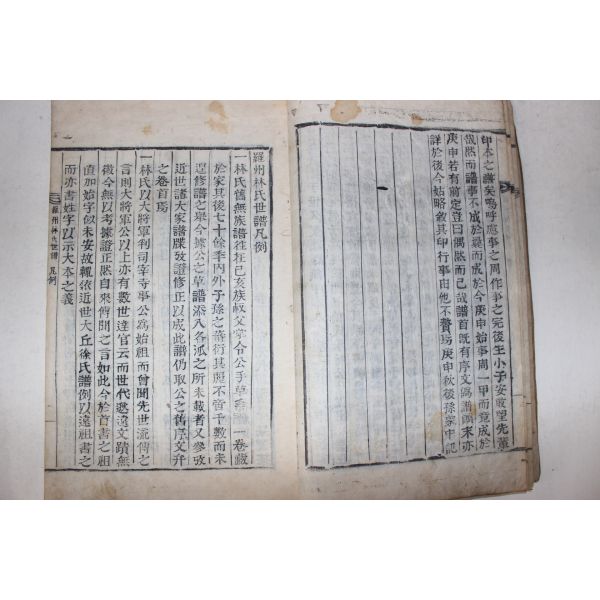 印本之謄矣嗚呼應事之周作事之完後生小子安敢望先輩
哉然而譜事不成於曩而成於今庚申始事周一甲而竟成於
庚申若有前定豈曰偶然而已哉譜首旣有序文篇末亦
詳於後今姑略敘其印行事由他不贅焉庚申秋後孫象中記
羅州林氏世譜凡例
一林氏舊無族譜往在己亥族叔父掌令公手草譜一卷藏
於家其後七十餘年內外子孫之蕃衍其麗不啻千數而未
遑修譜之擧今據公之草譜添入各派之所未載者又參攷
近世諸大家譜牒攷證修正以成此譜仍取公之舊序文弁
之卷首焉
一林氏以大將軍判司宰寺事公爲始祖而曾聞先世流傳之
言則大將軍公以上亦有數世達官云而世代邈遠文蹟無
徵今無以考據證正然自來傳聞之言如此今於首書之祖
直加始字似未安故輒依近世大丘徐氏譜例以遠祖書之
而亦書姓字以示大本之義
羅州林氏世譜 凡例